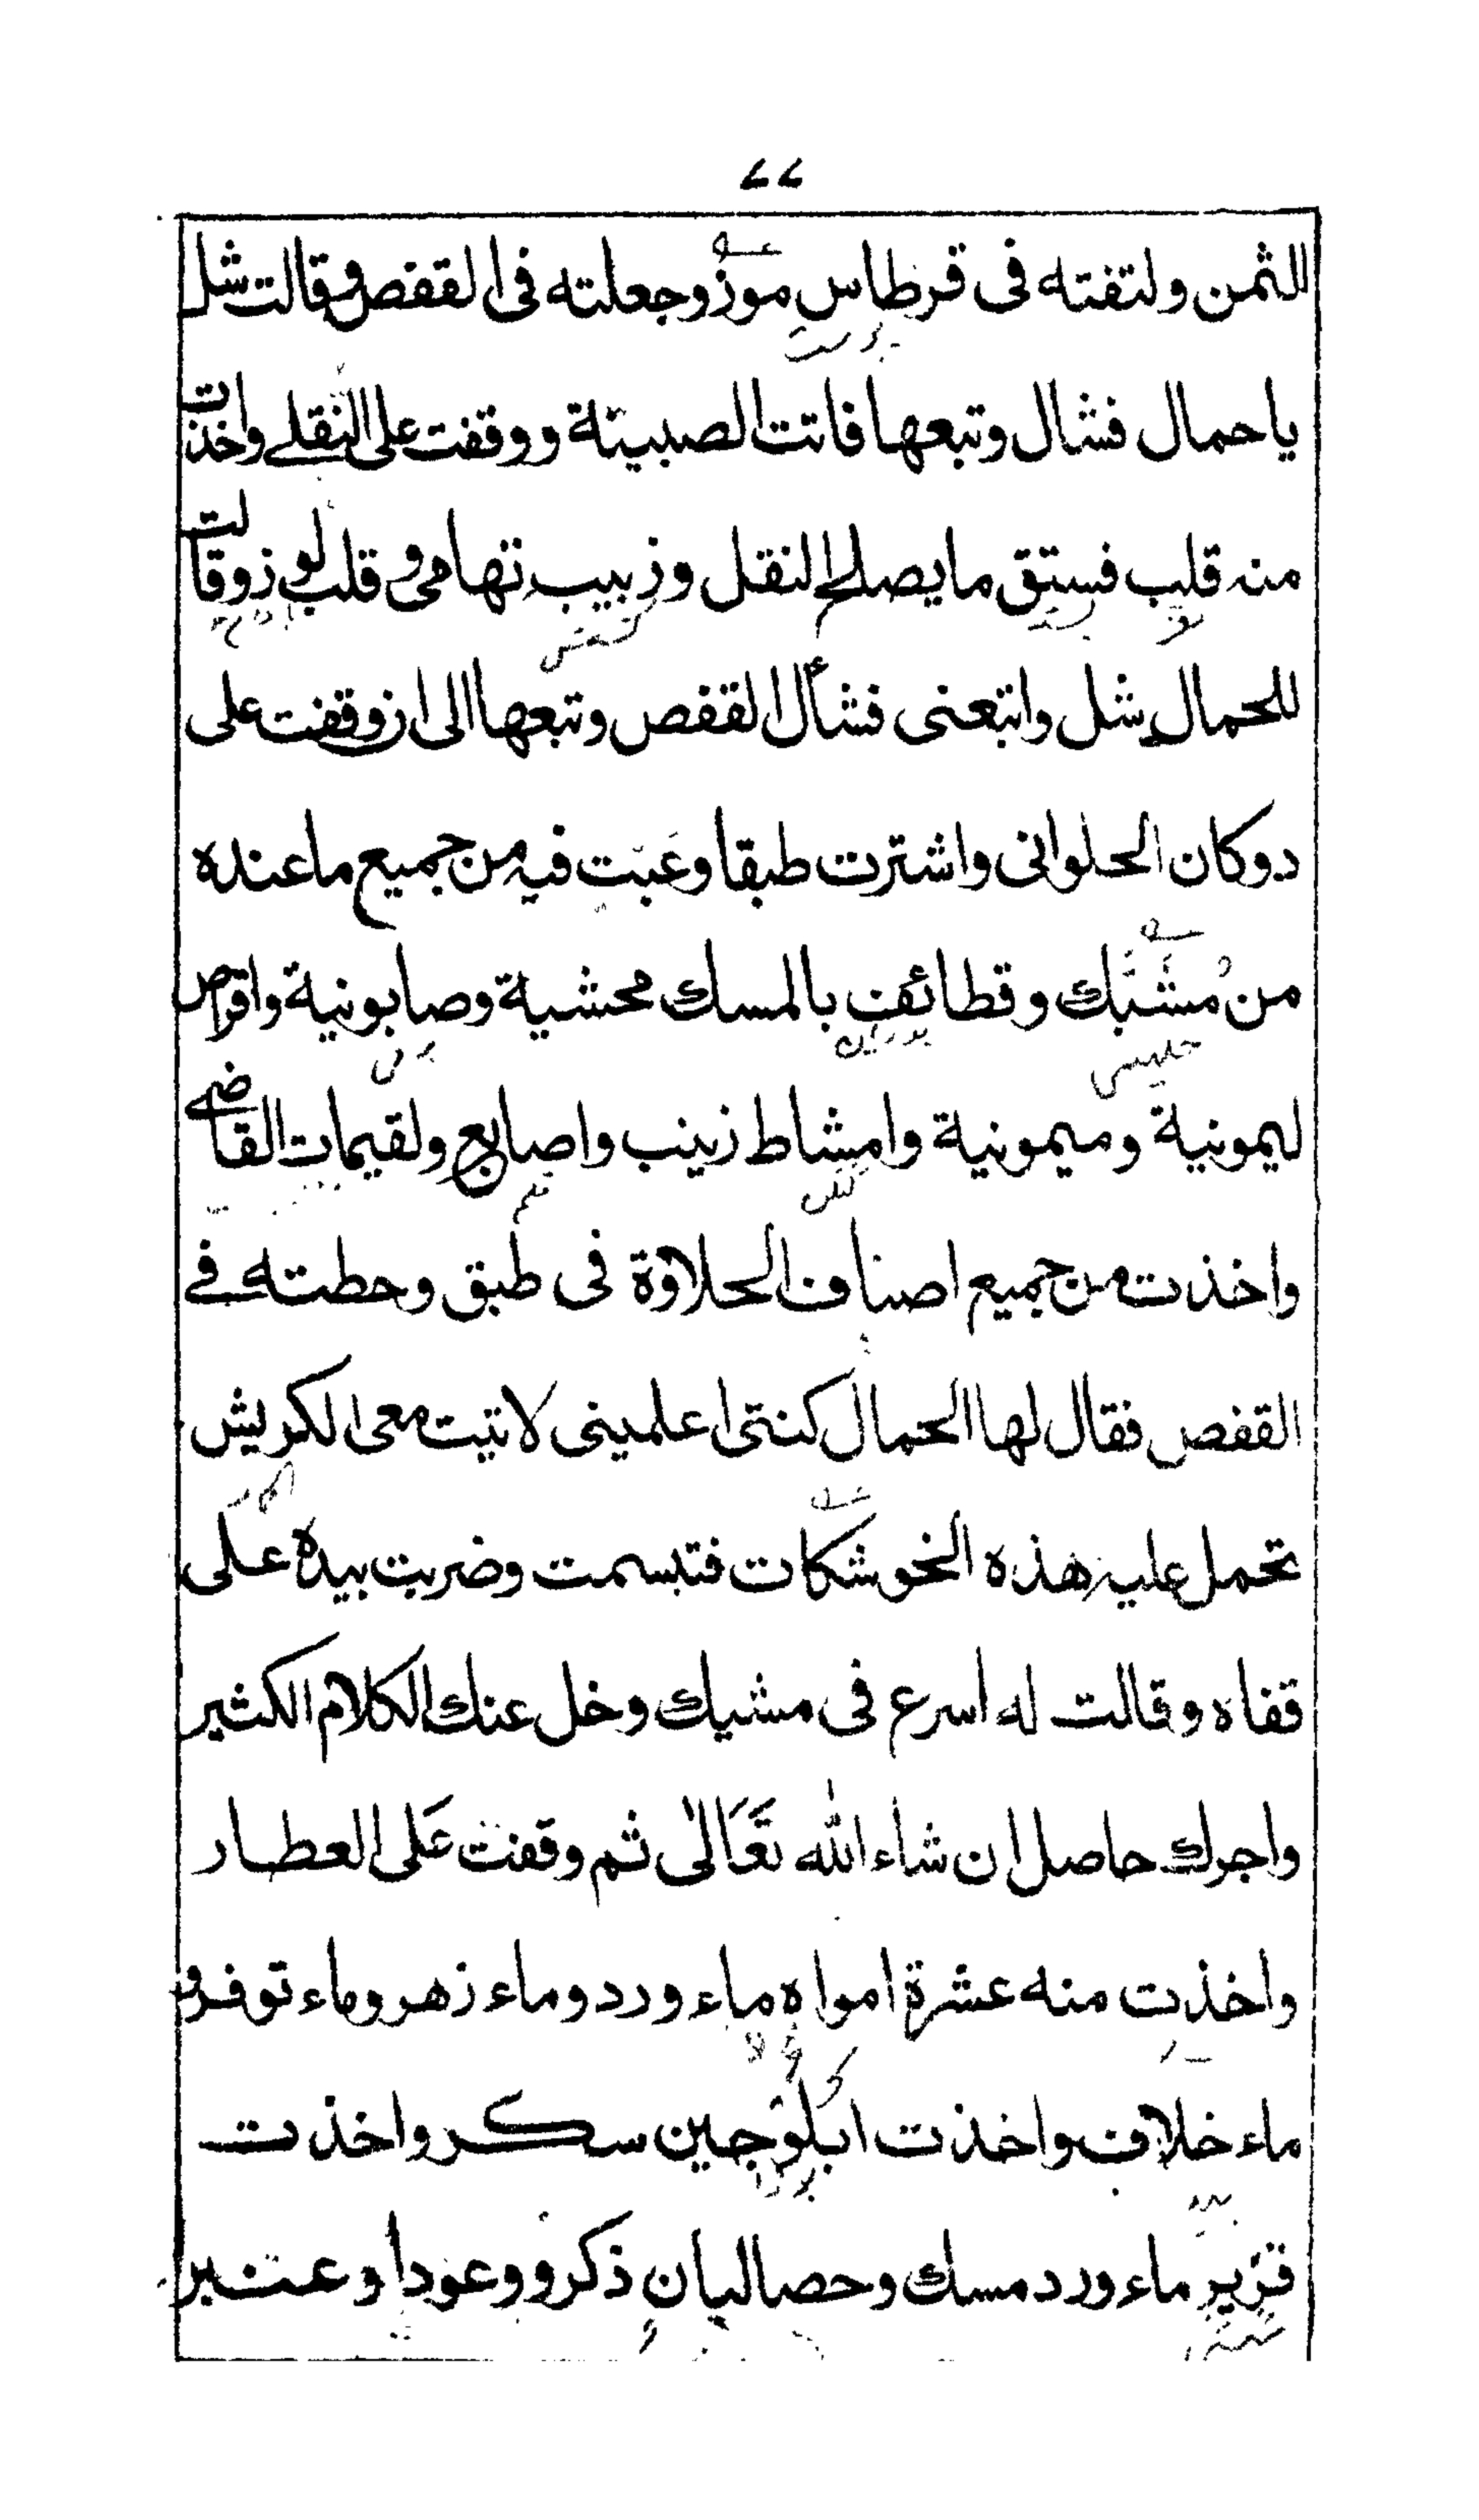 ٢٢
للثمن ولتفته فى قرطاس موز وجعلته فى القفص وقالت شل
يا حمال فشال وتبعها فاتت الصبيتة ووقفت على النقلے واخذت
منه قلب فستق ما يصلح النقل وزبيب تهامى وقلب لوز وقالت
للحمال شل واتبعنى فشأل القفص وتبعها الى ان وقفت على
دوكان الحلوانى واشترت طبقا وعبت فيه من جميع ما عنده
من مشبك وقطائف بالمسك محشية وصابونية واقراص
ليمونية وميمونية وامشاط زينب واصابع ولقيمات القاضے
واخذت من جميع اصناف الحلاوة فى طبق وحطته فے
القفص فقال لها الحمال كنتى اعلمينى لاتيت معى الكريش
تحمل عليه هذه الخوشكات فتبسمت وضربت بيده على
قفاه وقالت له اسرع فى مشيك وخل عنك الكلام الكثير
واجرك حاصل ان شاء الله تعالى ثم وقفت على العطار
واخذت منه عشرة امواه ماء ورد وماء زهر وماء توفر و
ماء خلاف واخذت ابلوجين سكر واخذت
قزيز ماء ورد مسك وحصا لبان ذكر و وعودا وعنبرا